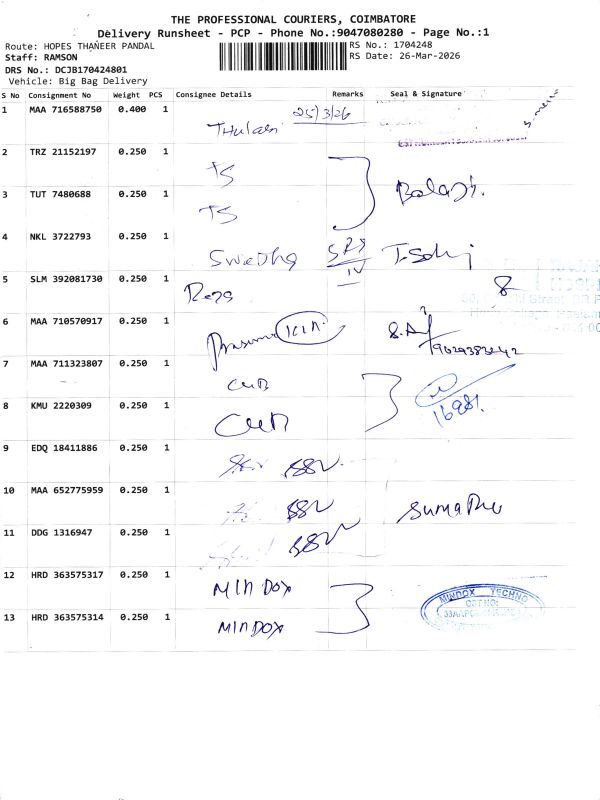 THE PROFESSIONAL COURIERS, COIMBATORE
Delivery Runsheet - PCP - Phone No.:9047080280 - Page No.:1
Route: HOPES THANEER PANDAL
RS No.: 1704248
Staff: RAMSON
RS Date: 26-Mar-2026
DRS No.: DCJB170424801
Vehicle: Big Bag Delivery
S No Consignment No Weight PCS Consignee Details Remarks Seal & Signature
1 MAA 716588750 0.400 1 Thulasi 25/3/26
2 TRZ 21152197 0.250 1 TS
3 TUT 7480688 0.250 1 TS Balaji.
4 NKL 3722793 0.250 1 Swetha
5 SLM 392081730 0.250 1
6 MAA 710570917 0.250 1
7 MAA 711323807 0.250 1 CUB
8 KMU 2220309 0.250 1 CUB
9 EDQ 18411886 0.250 1 SSV
10 MAA 652775959 0.250 1 SSV Sumathi
11 DDG 1316947 0.250 1 SSV
12 HRD 363575317 0.250 1 MINDOX
13 HRD 363575314 0.250 1 MINDOX
MINDOX TECHNO